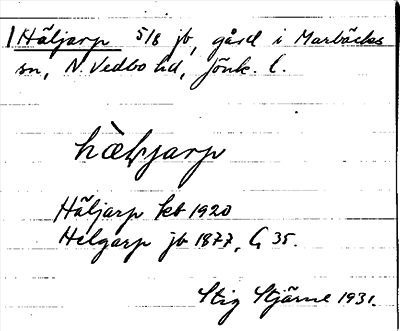 Häljarp 5/8 jb, gård i Marbäcks
sn, N. Vedbo hd, Jönk. l.
hàljarp
Häljarp kb 1920
Helgarp jb 1877, G 35.
Stig Stjärne 1931.